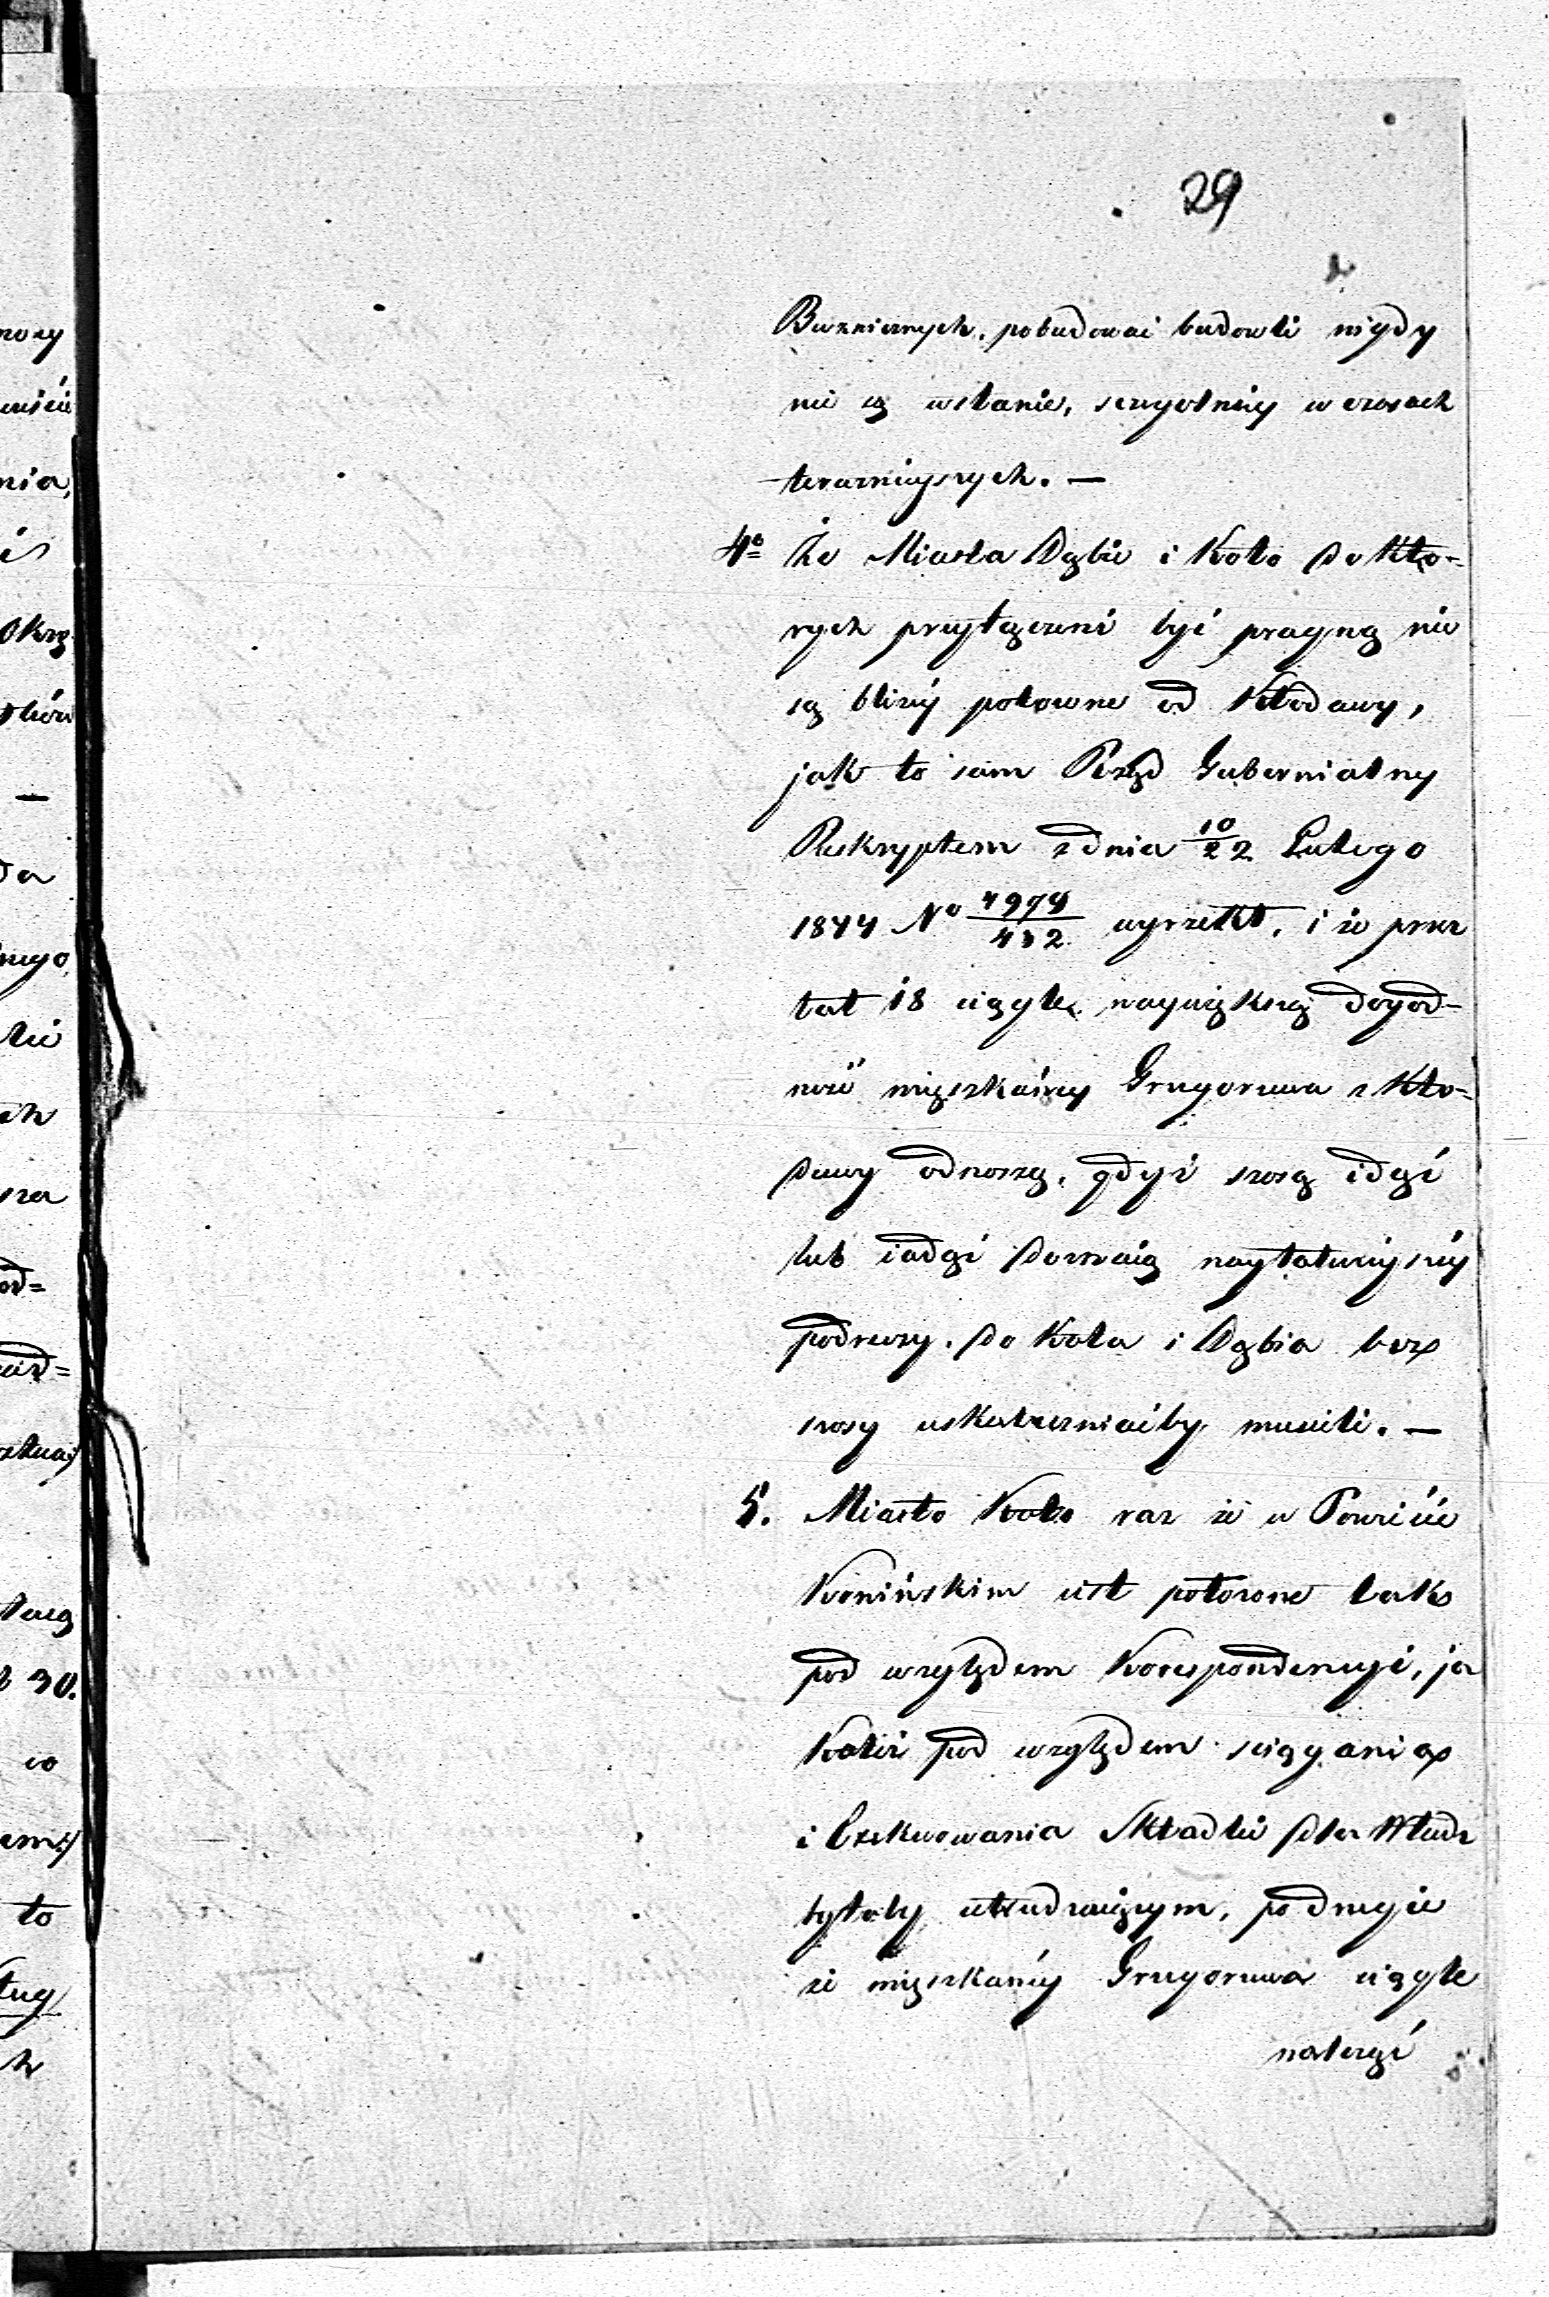 29
Bużnicznych pobudować budowli nigdy
nie są wstanie, szczegolniéj w czasach
terazniejszych. —
4o Że Miasta Dąbie i Koło do Któ-
rych przyłączeni być pragną nie
są bliżéj położone od Kłodawy,
jak to sam Rząd Gubernialny
Reskryptem z dnia 10/22 Lutego
1844 No 4974/432 wyrzekł, i że przez
lat 18 ciągle naywiększą dogod-
ność mięszkańcy Grzegorzewa z Kło-
dawy odnoszą, gdyż szosą idąc
lub iadąc doznaią nayłatwiéjszéj
podruży, do Koła i Dąbia bez
szosy uskuteczniaćby musieli. —
5. Miasto Koło raz że w Powiecie
Konińskim iest położone tak
pod względem Korespondencyi, ja
Koteż pod względem sciągania
i Exekwowania Składki dla Władz
byłoby utrudzaiącym, podrugie
że mięszkańcy Grzegorzewa ciągle
należąc
nia,
Okrę
—
da
nego
ch
sza
od=
30.
co
to